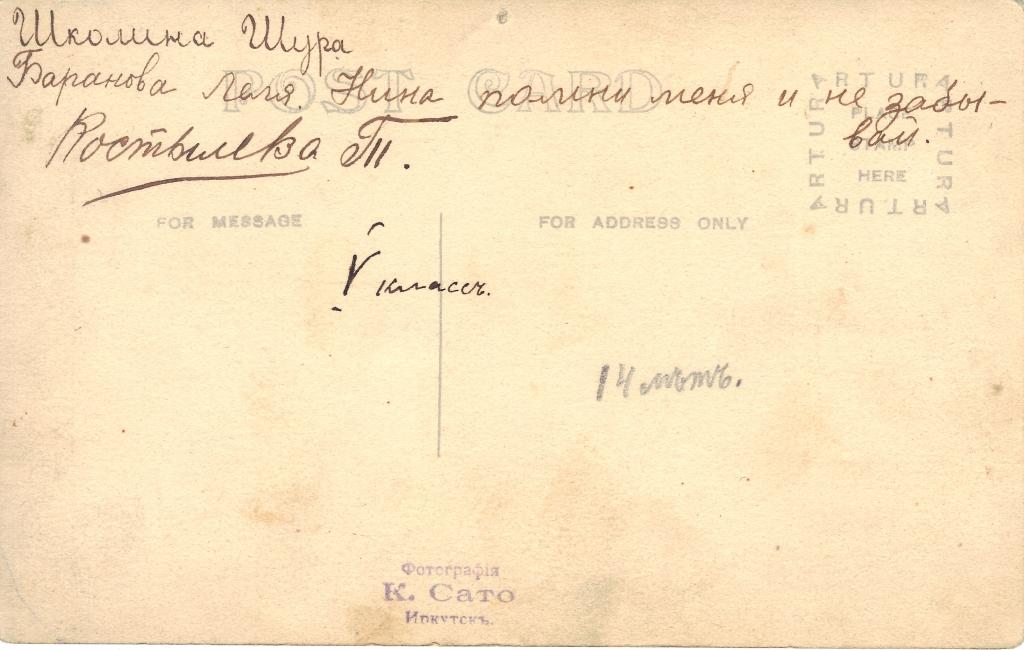 Школина Шура
POST CARD
Баранова Леля. Нина помни меня и не забы-
вай.
Костылева Т.
ARTURA
ARTURA
ARTURA
ARTURA
PLACE
STAMP
HERE
FOR MESSAGE
FOR ADDRESS ONLY
V классъ.
14 лѣтъ.
Фотографія
К. Сато
Иркутскъ.